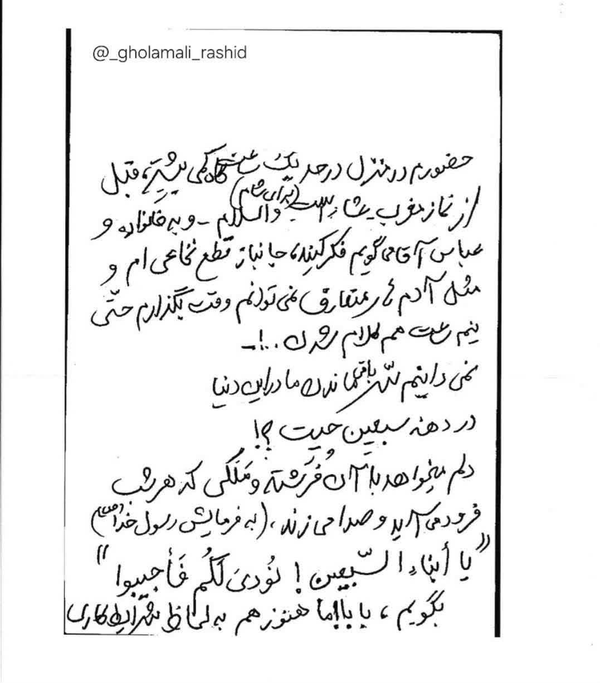 @_gholamali_rashid
حضورم در منزل در حد یک ساعت گاه کمی بیشتر، قبل
از نماز مغرب عشاء است (برای شام) والسلام - و به خانواده و
عباس آقا می گویم فکر کنید، جانباز قطع نخاعی ام و
مثل آدم های متعارف نمی توانم وقت بگذارم حتّی
نیم ساعت هم کلام شدن ..!-
نمی دانیم سّر باقیماندن ما در این دنیا
در دهنه سبعین چیست ؟!
دلم میخواهد با آن فُرشته و مَلَکی که هر شب
فرود می آید و صدا می زند، (به فرمایش رسول خدا)
"یا أبناء السّبعین! نُودیَ لَکُم فَأجیبوا"
بگویم، بابا! ما هنوز هم به لحاظ شرایط کاری